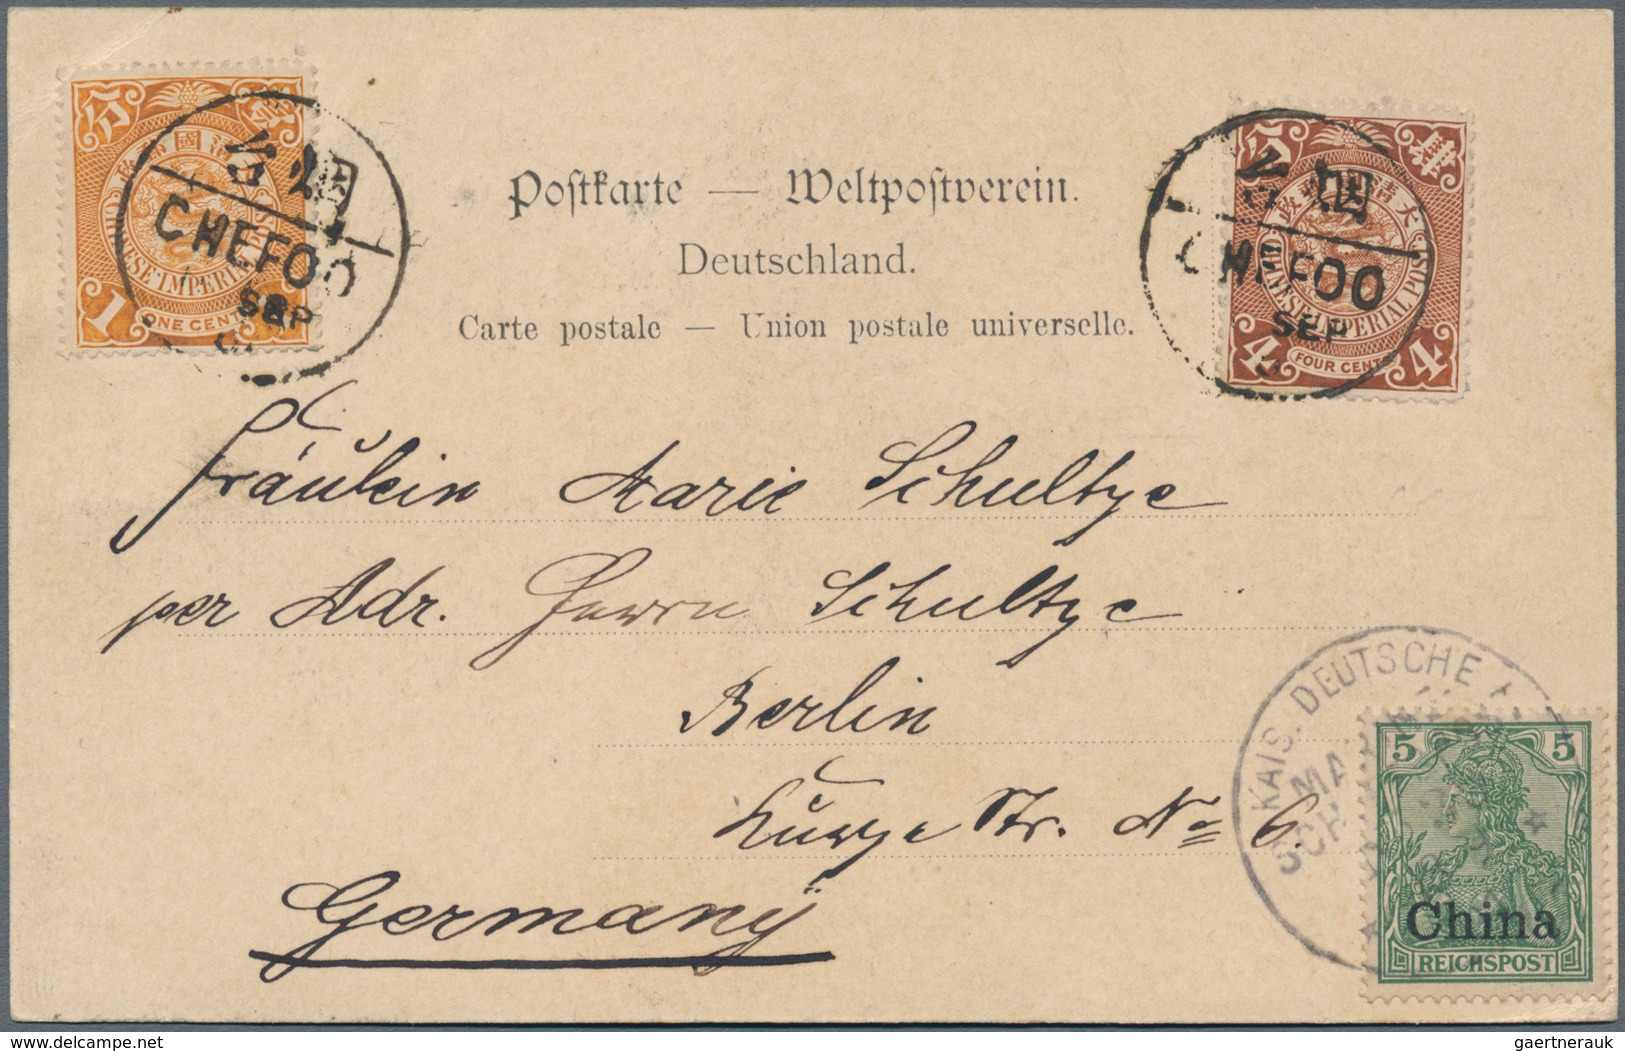 Postkarte — Weltpostverein.
Deutschland.
Carte postale — Union postale universelle.
CHINESE IMPERIAL POST
1 ONE CENT
CHEFOO
SEP
大清國郵政
CHINESE IMPERIAL POST
4 FOUR CENTS 4
CHEFOO
SEP
Fräulein Marie Schultze
per Adr. Herrn Schultze
Berlin
Kurze Str. No 6.
Germany
KAIS. DEUTSCHE
MA
SCH
5 5
China
REICHSPOST
gaertnerauk